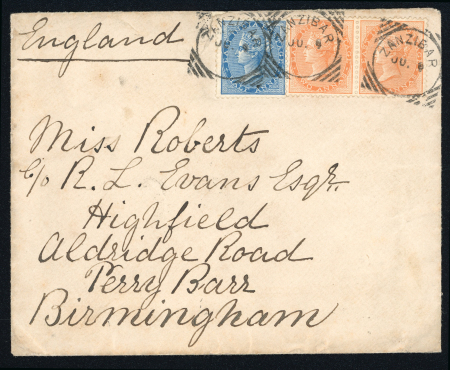 England
ZANZIBAR
JU.
ZANZIBAR
JU.
ZANZIBAR
JU.
Miss Roberts
c/o R. L. Evans Esqr.
Highfield
Aldridge Road
Perry Barr
Birmingham